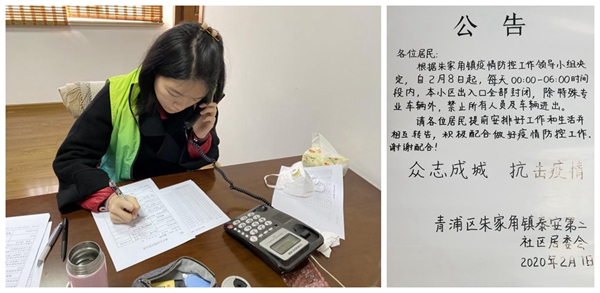 公告
各位居民:
根据朱家角镇疫情防控工作领导小组决
定,自2月8日起,每天00:00-06:00时间
段内,本小区出入口全部封闭,除特殊专
业车辆外,禁止所有人员及车辆进出。
请各位居民提前安排好工作和生活并
相互转告,积极配合做好疫情防控工作。
谢谢配合!
众志成城 抗击疫情
青浦区朱家角镇泰安第二
社区居委会
2020年2月7日